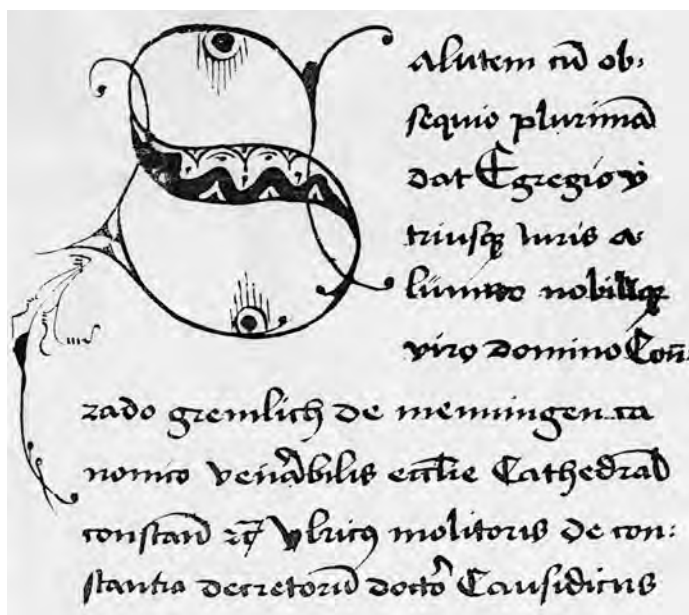 Salutem cū ob⸗
sequio plurimā
dat Egregio v
triusqꝫ Iuris a⸗
lūmno nobiliqꝫ
viro domino Con̄⸗
rado gremlich de menningen ca
nonico venˀabilis eccl̄ie Cathedral̄
constan̄ ⁊c̄ Vlricꝰ molitoris de con⸗
stantia decretorū doctoˀ Causidicus